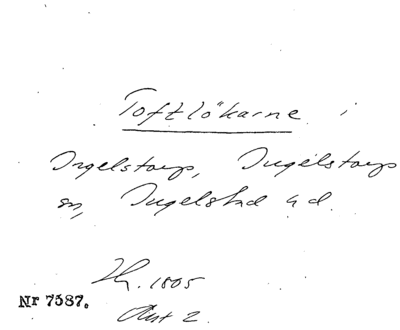 Toftlökarne i
Ingelstorps, Ingelstorps
sn, Ingelstad hd.
Hh. 1805
Akt 2.
Nr 7587.